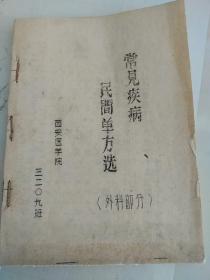 常見疾病
民間单方选
（外科部分）
西安医学院
三二〇九班